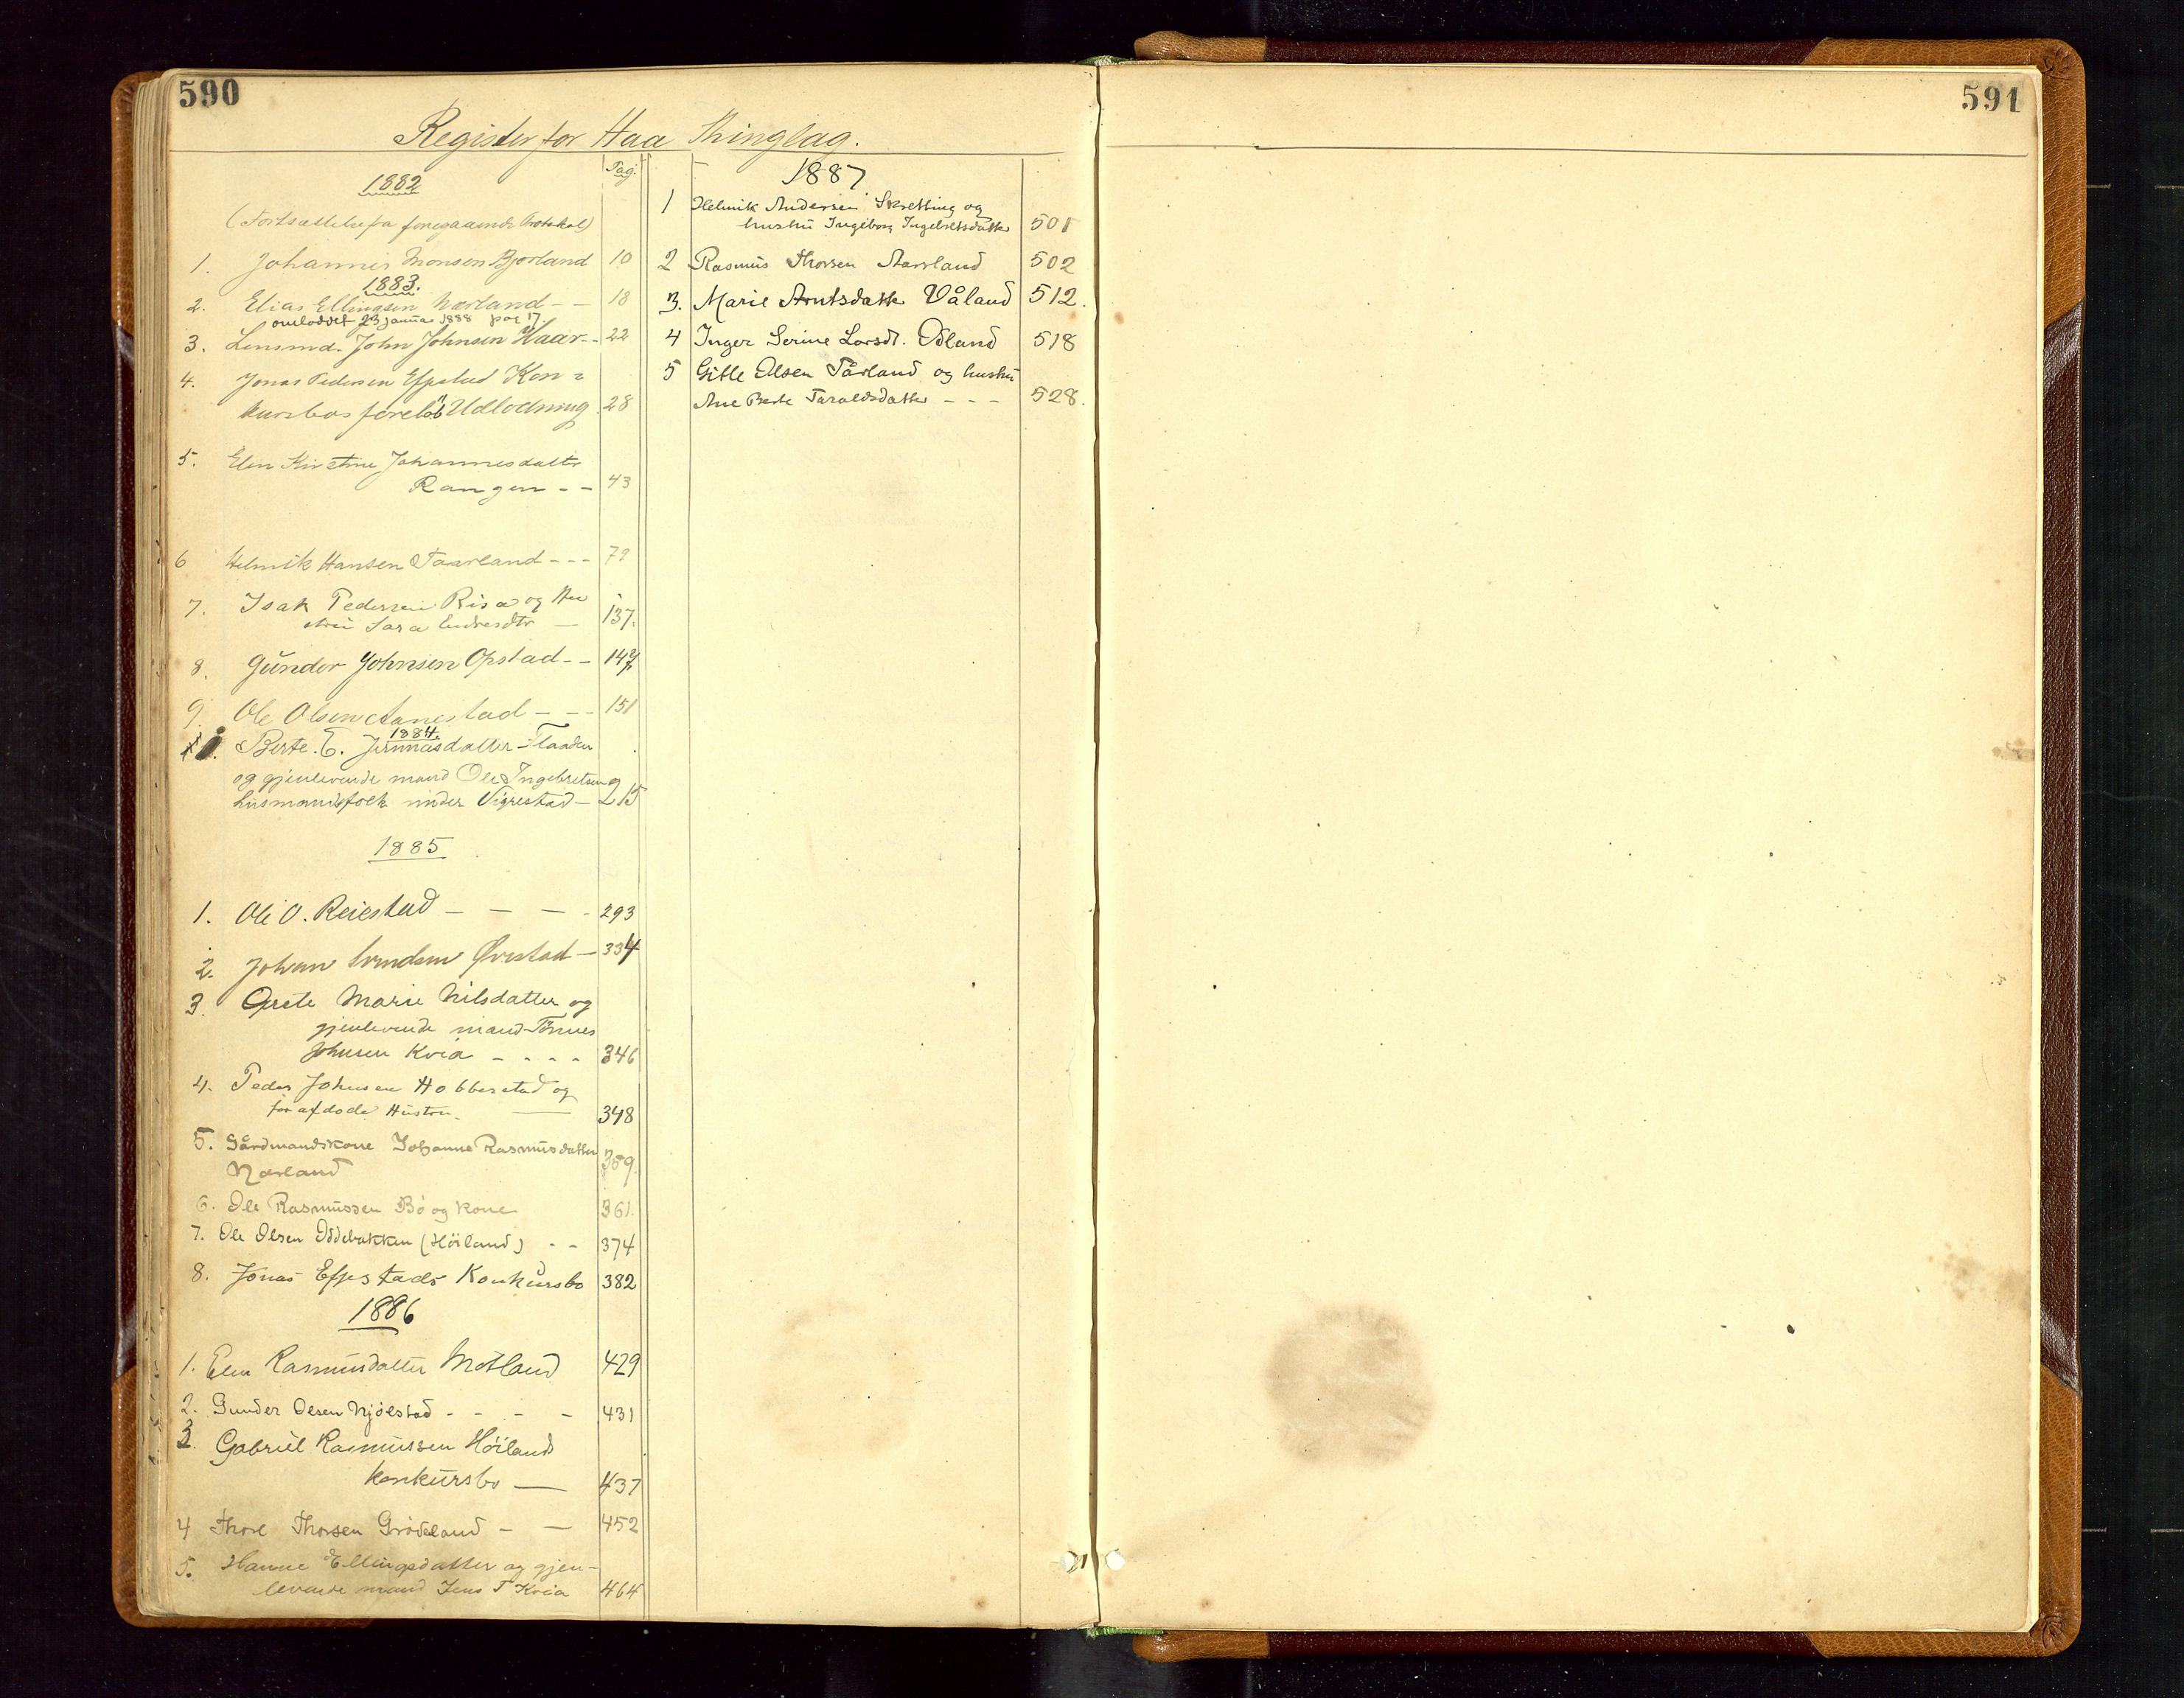 590
Register for Haa Thinglag.
Pag.
1882
(Fortsættelse fra foregaaende Protokol)
1. Johannes Monsen Bjorland 10
1883.
2. Elias Ellingsen Nærland - - 18
omloddet 23 januar 1888 pag 17.
3. Lensmd. John Johnsen Haar - - 22
4. Jonas Pedersen Efjestad Kon=
kursbos foreløb Udlodning 28
5. Elen Kirstine Johannesdatter
Rangen - - 43
6 Helmik Hansen Taarland - - - 79
7. Isak Pedersen Risa og Hu
stru Sara Endresdtr — 137.
8. Gunder Johnsen Opstad - - 147
9. Ole Olsen Aanestad - - - 151
1884.
1. Berte E. Jermiasdatter
og gjenlevende mand Ole Ingebretsen
husmandsfolk under Vigrestad — 215
1885
1. Ole O. Reiestad — — — - 293
2. Johan Svendsen Øvrestad — 334
3. Grete Marie Nilsdatter og
gjenlevende mand Tönnes
Johnsen Kvia - - - - 346
4. Peder Johnsen Hobberstad og
før afdøde Hustru — 348
5. Gårdmandskone Johanne Rasmusdatter
Nærland 359.
6. Ole Rasmussen Bö og kone 361.
7. Ole Olsen Oddebakken (Höiland) - - 374
8. Jonas Efjestads Konkursbo 382
1886
1. Elen Rasmusdatter Motland 429
2. Gunder Olsen Njölstad - - - - 431
3. Gabriel Rasmussen Höilands
konkursbo — 437
4 Thore Thorsen Grödeland - — 452
5. Hanne Ellingsdatter og gjen-
levende mand Jens T Kvia 464
1887
1 Helmik Andersen Skretting og
hustru Ingeborg Ingebretsdatter 501
2 Rasmus Thorsen Aarsland 502
3. Marie Arntsdatter Våland 512.
4 Inger Serine Larsdt. Ødland 518
5 Gitle Olsen Tårland og hustru
Ane Berte Taraldsdatter - - - 528.
591